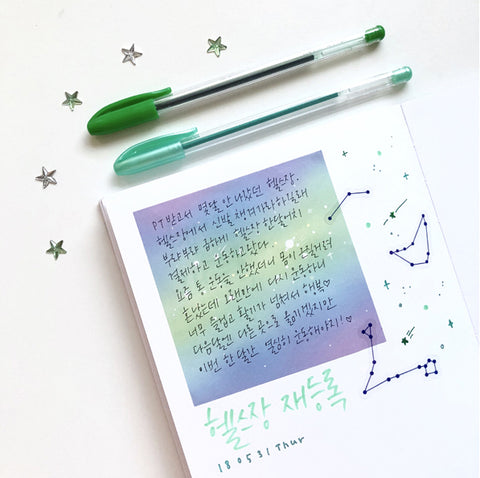 PT 받고서 몇달 안 나갔던 헬스장.
헬스장에서 신발 챙겨가라하길래
부랴부랴 급하게 헬스장 한달어치
결제하고 운동하고왔다
요즘 통 운동을 안했더니 몸이 근질거려
혼났는데 오랜만에 다시 운동하니
너무 즐겁고 활기가 넘쳐서 행복♡
다음달엔 다른 곳으로 옮기겠지만
이번 한 달간 열심히 운동해야지!♡
헬스장 재등록
18 05 31 Thur